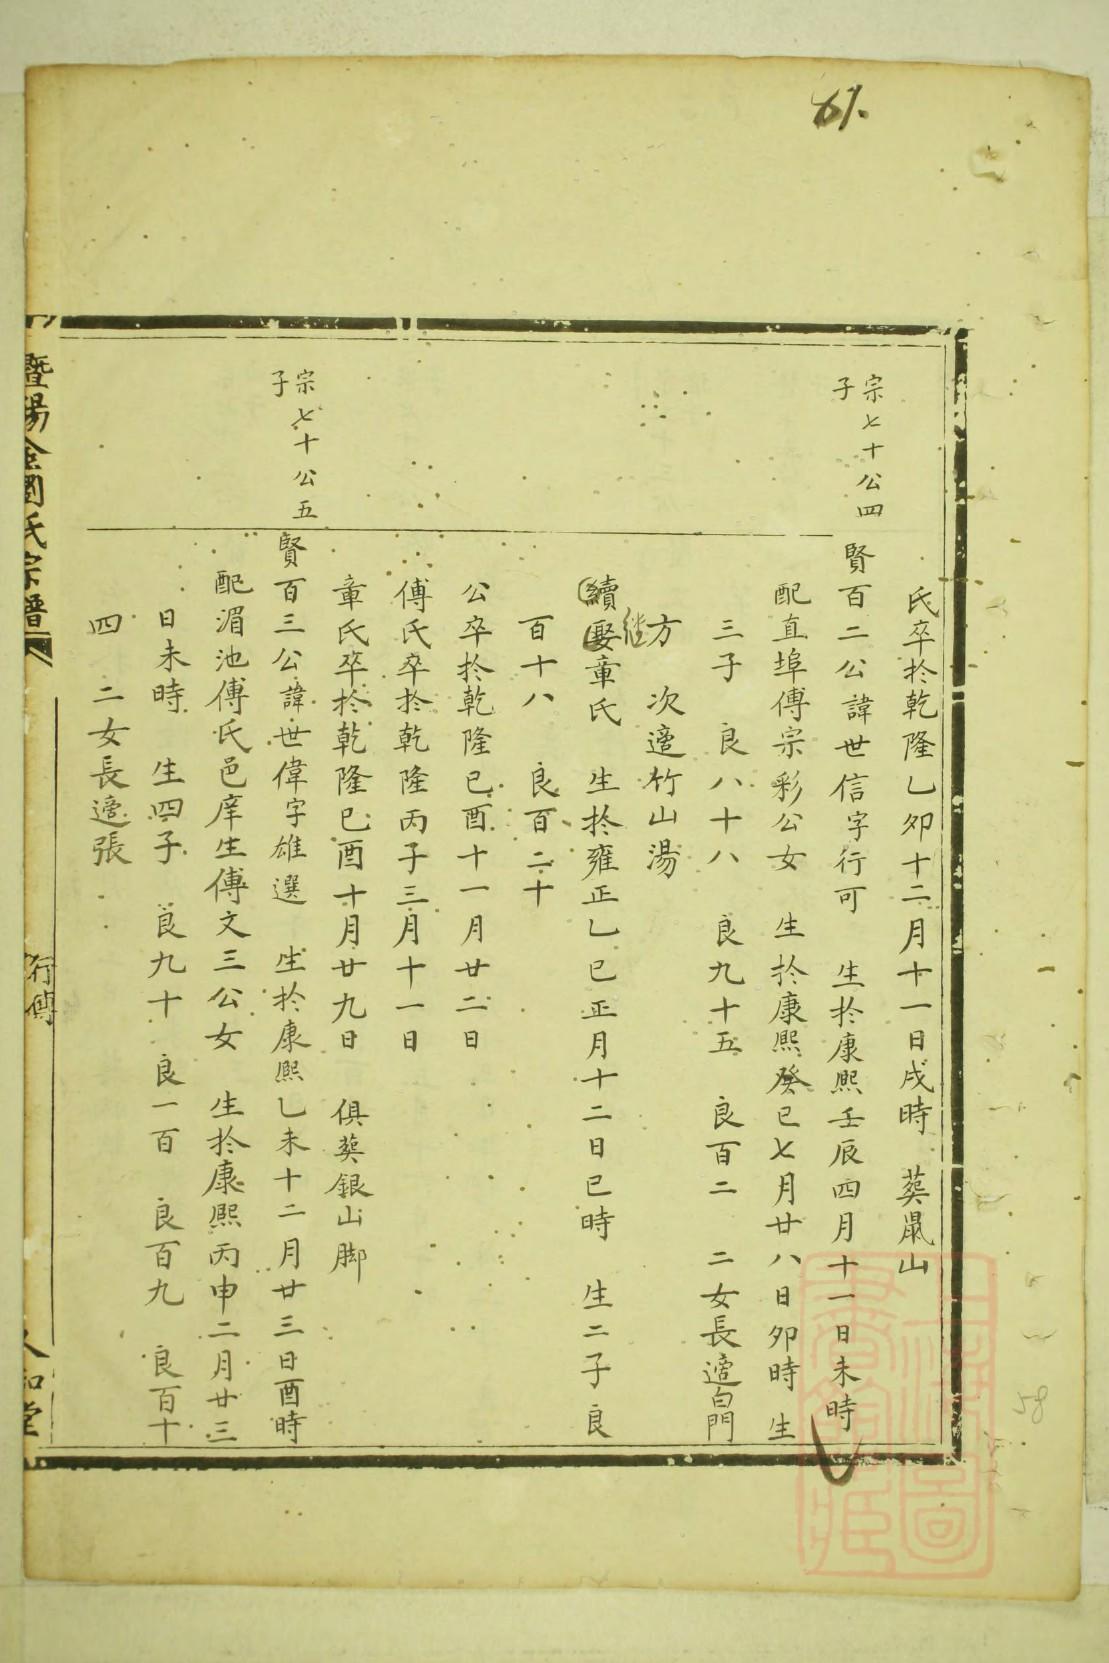 61.
氏卒於乾隆乙卯十二月十一日戌時　葬鼠山
宗七十公四
子
賢百二公諱世信字行可　生於康熙壬辰四月十一日未時
配直埠傅宗彩公女　生於康熙癸巳七月廿八日卯時　生
三子　良八十八　良九十五　良百二　二女長適白門
方　次適竹山湯
續娶章氏　生於雍正乙巳正月十二日巳時　生二子良
継
百十八　良百二十
公卒於乾隆己酉十一月廿二日
傅氏卒於乾隆丙子三月十一日
章氏卒於乾隆己酉十月廿九日　俱葬銀山脚
宗七十公五
子
賢百三公諱世偉字雄選　生於康熙乙未十二月廿三日酉時
配湄池傅氏邑庠生傅文三公女　生於康熙丙申二月廿三
日未時　生四子　良九十　良一百　良百九　良百十
四　二女長適張
暨陽　氏宗譜
行傳
人和堂
上海圖
書館藏
58